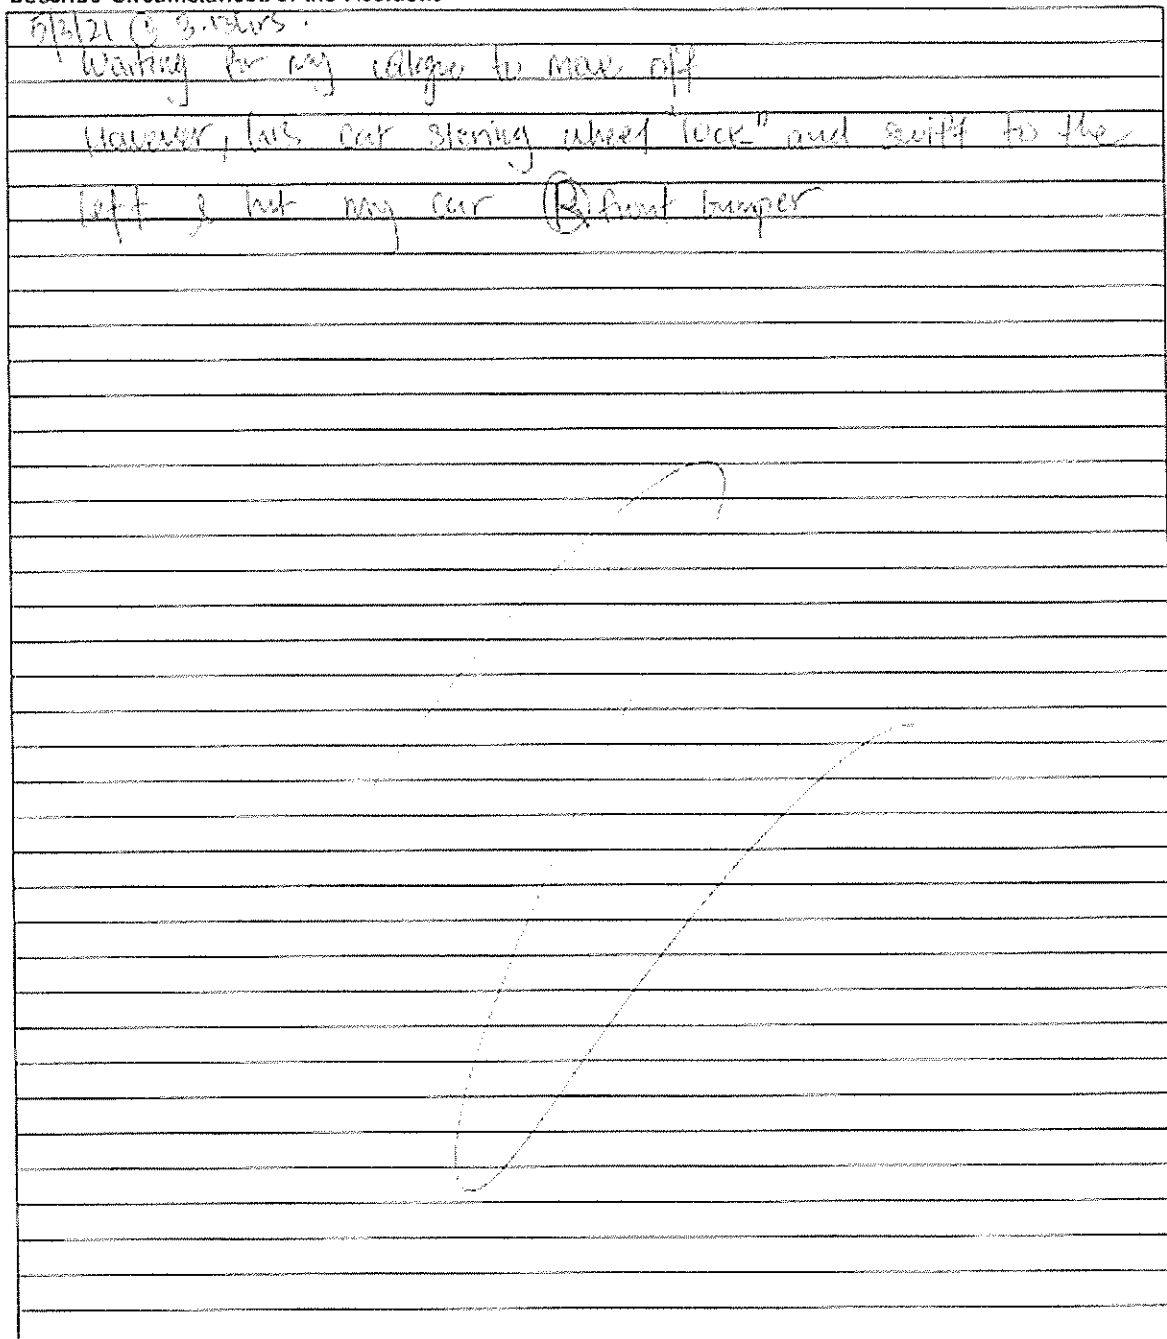 Describe Circumstances of the Accident
5/3/21 @ 3.13hrs.
Waiting for my to move off
However, his car stering wheel "lock" and swift to the
left & hit my car (R) front bumper